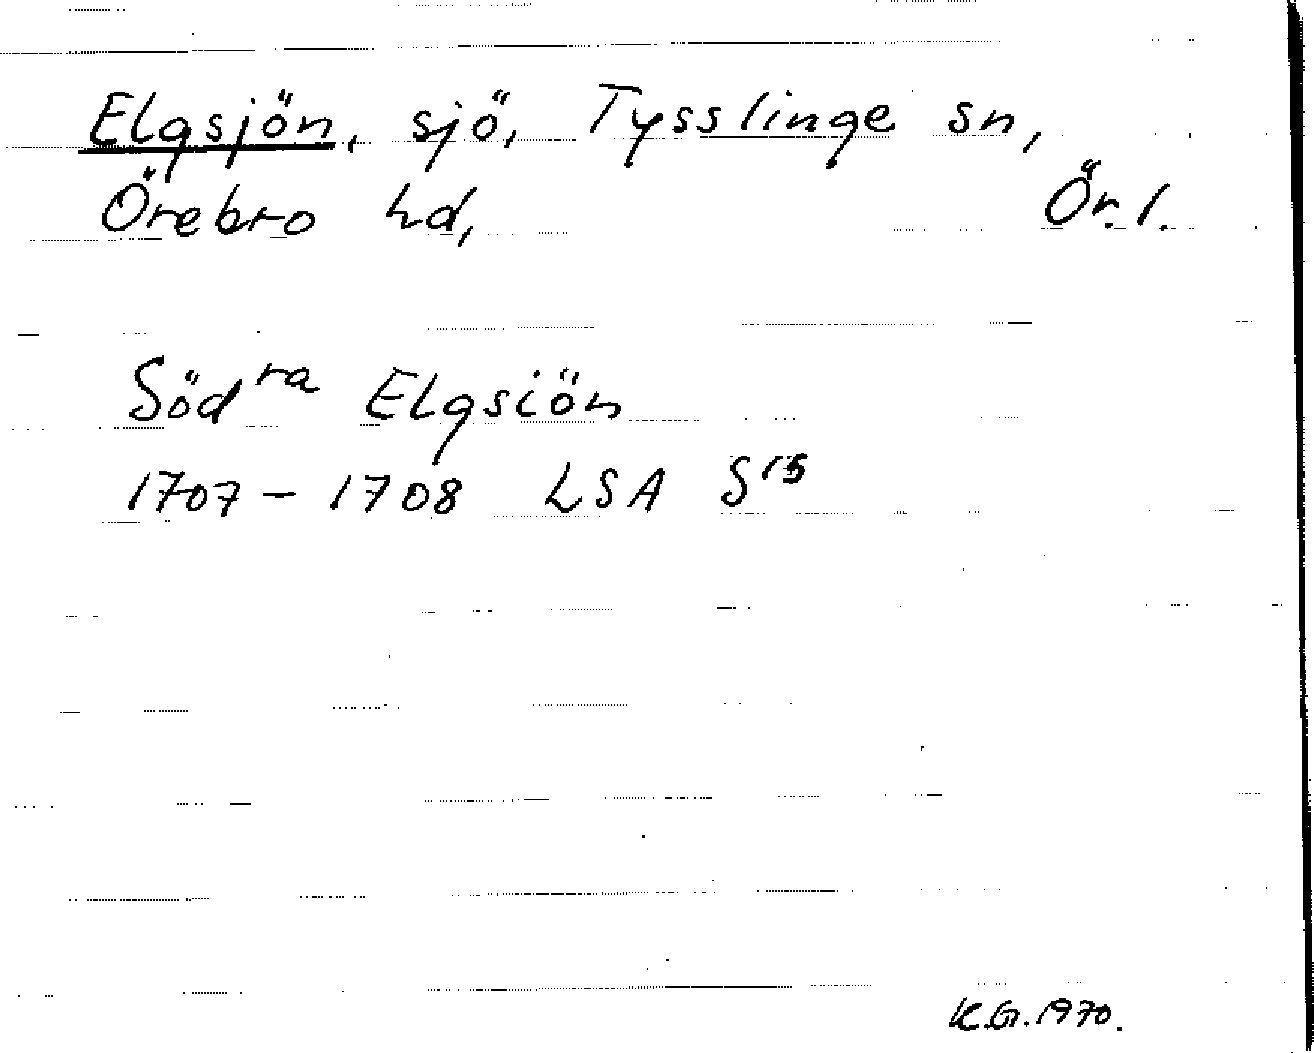 Elgsjön, sjö, Tysslinge sn,
Örebro hd, Ör. l.
Söd^ra Elgsiön
1707-1708 LSA S^15
K.G. 1970.